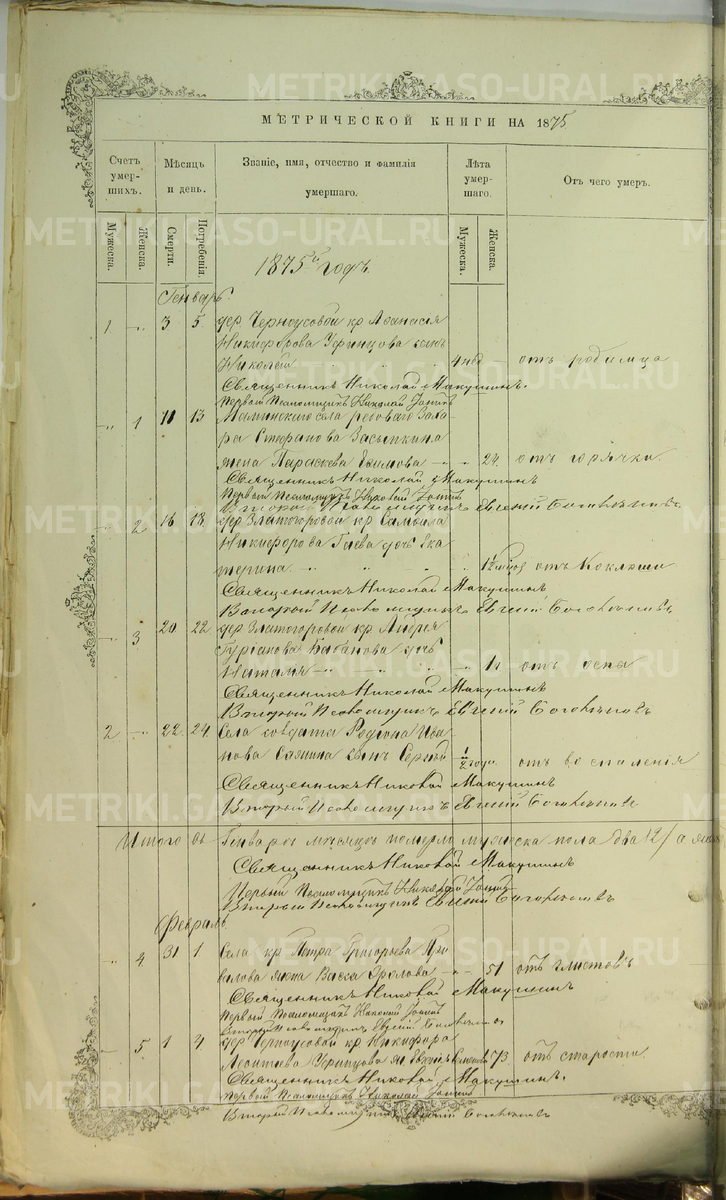 МЕТРИЧЕСКОЙ КНИГИ НА 1875
Счетъ умершихъ.
Мѣсяцъ и день.
Званіе, имя, отчество и фамилія умершаго.
Лѣта умершаго.
Отъ чего умеръ.
Мужеска.
Женска.
Смерти.
Погребенія.
Мужеска.
Женска.
1875й годъ.
Генварь.
1 „ 3 5 дер. Черноусовой кр. Аѳанасія
Никифорова Уфинцова сынъ
Николай 4 нед. отъ родимца
Священникъ Николай Макушинъ.
Первый Псаломщикъ Николай
„ 1 11 13 Маминскаго села
Стефанова Засыпкина
жена Параскева Ефимова 24 отъ горячки
Священникъ Николай Макушинъ
Первый Псаломщикъ Николай
Второй Псаломщикъ Евгеній
„ 2 16 18 дер. Златогоровой кр. Самоила
Никифорова Гаева дочь Ека
терина 1½ отъ Коклюша
Священникъ Николай Макушинъ
Второй Псаломщикъ Евгеній
„ 3 20 22 дер. Златогоровой кр. Андрея
Кабанова дочь
Наталія 1 отъ оспы
Священникъ Николай Макушинъ
Второй Псаломщикъ Евгеній
2 „ 22 24 Села солдата Родіона Ива
нова сынъ Сергѣй ½ года отъ воспаленія
Священникъ Николай Макушинъ
Второй Псаломщикъ Евгеній
Итого въ Генварѣ мѣсяцѣ померло мужеска пола два /2/ а женска
Священникъ Николай Макушинъ
Первый Псаломщикъ Николай
Второй Псаломщикъ Евгеній
Февраль.
„ 4 31 1 Села кр. Петра Григорьева
жена Васса Фролова 51 отъ глистовъ
Священникъ Николай Макушинъ
Первый Псаломщикъ Николай
Второй Псаломщикъ Евгеній
„ 5 1 4 дер. Черноусовой кр. Никифора
Леонтьева Уфинцова 73 отъ старости
Священникъ Николай Макушинъ.
Первый Псаломщикъ Николай
Второй Псаломщикъ Евгеній
METRIKI.GASO-URAL.RU